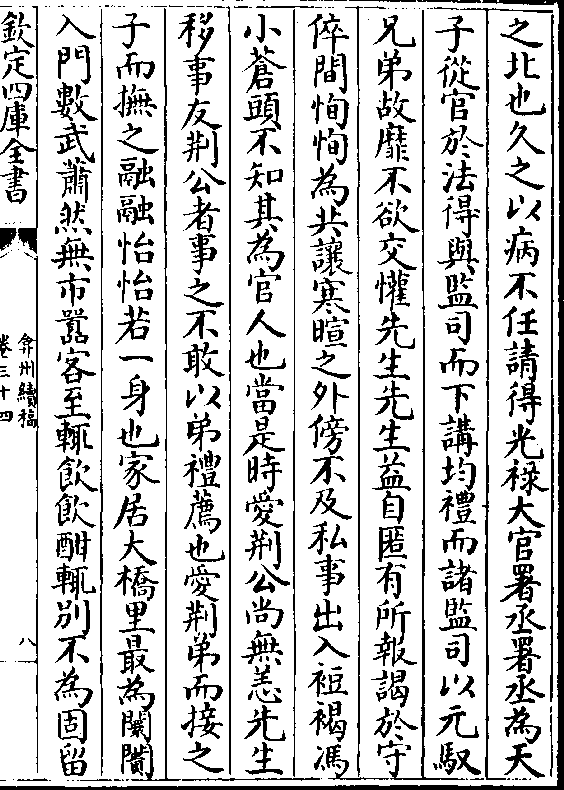 之北也久之以病不任請得光祿大官署丞署丞為天
子從官於法得與監司而下講均禮而諸監司以元馭
兄弟故靡不欲交懽先生先生益自匿有所報謁於守
倅間恂恂為共讓寒暄之外傍不及私事出入裋褐馮
小蒼頭不知其為官人也當是時愛荆公尚無恙先生
移事友荆公者事之不敢以弟禮薦也愛荆弟而接之
子而撫之融融怡怡若一身也家居大橋里最為闤闠
入門數武蕭然無市囂客至輒飲飲酣輒别不為固留
欽定四庫全書
弇州續稿
卷三十四
八